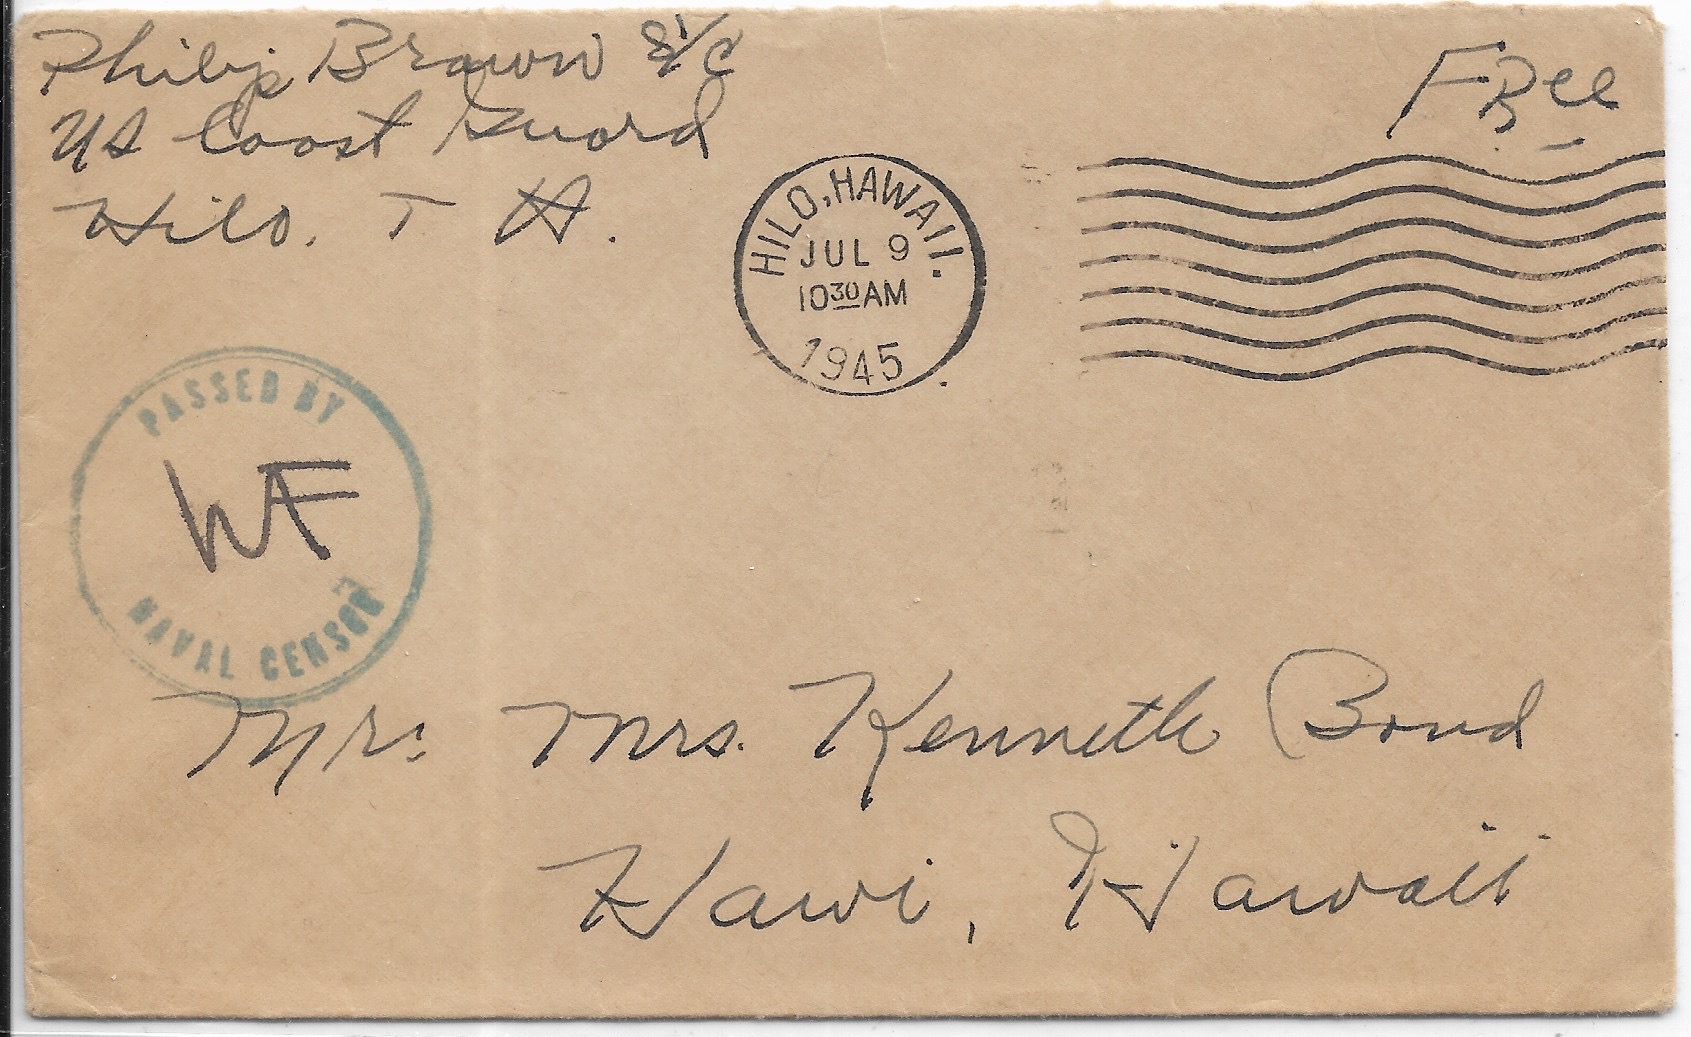 Philip Brown S1/C
US Coast Guard
Hilo. T H.
Free
HILO, HAWAII.
JUL 9
10 30 AM
1945
PASSED BY
WF
NAVAL CENSOR
Mr. Mrs. Kenneth Bond
Hawi, Hawaii